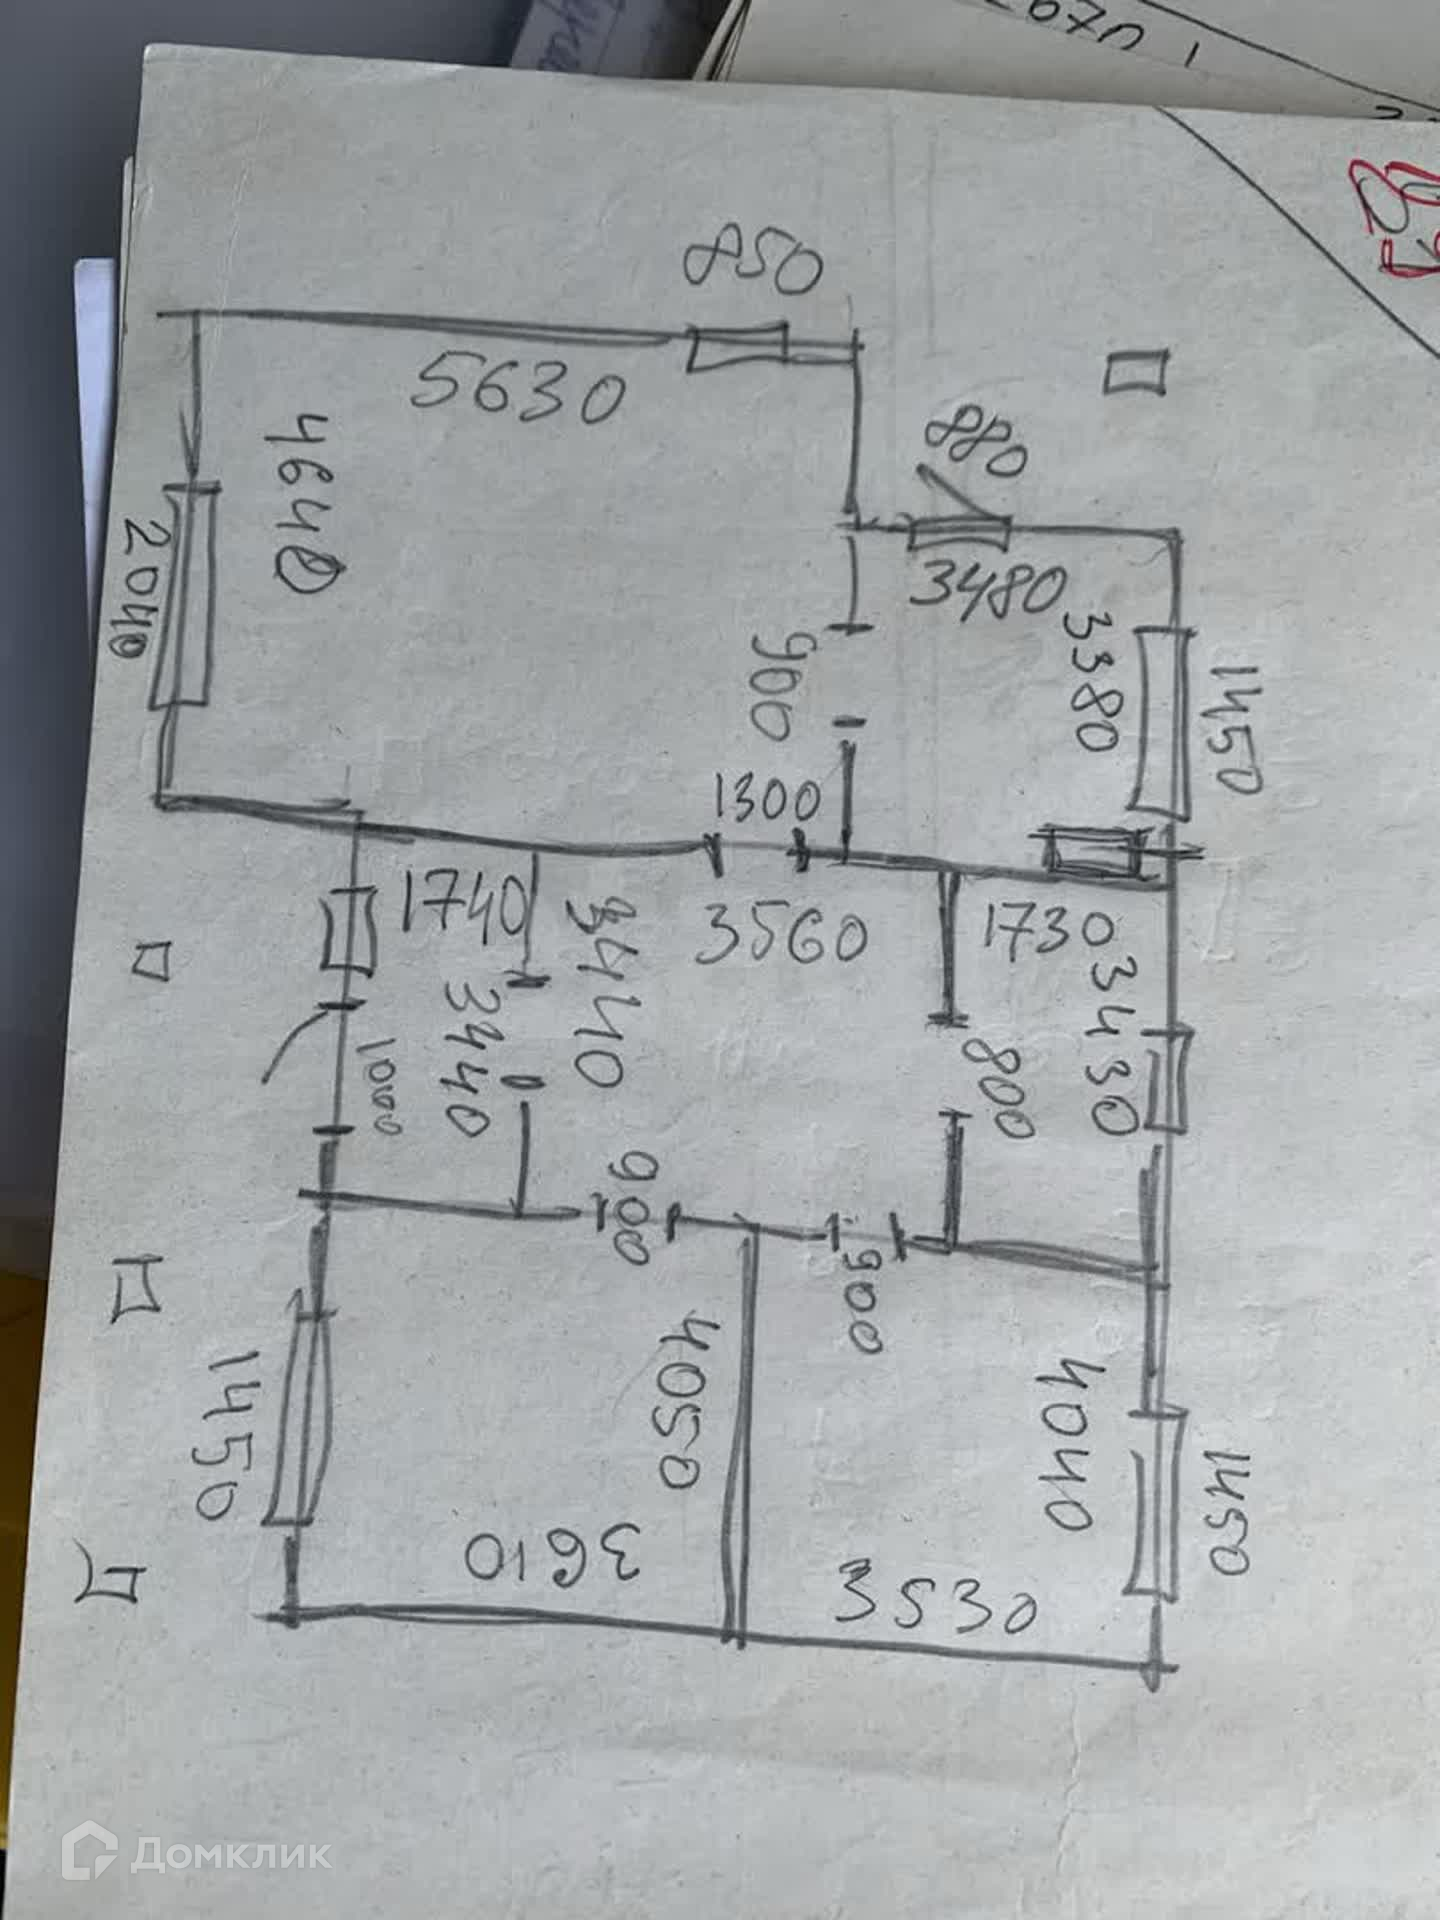 850
5630
880
4640
2040
3480
3380
1450
900
1300
1740
3440
3560
1730
3430
3440
1000
800
900
900
4050
4040
1450
1450
3610
3530
Домклик